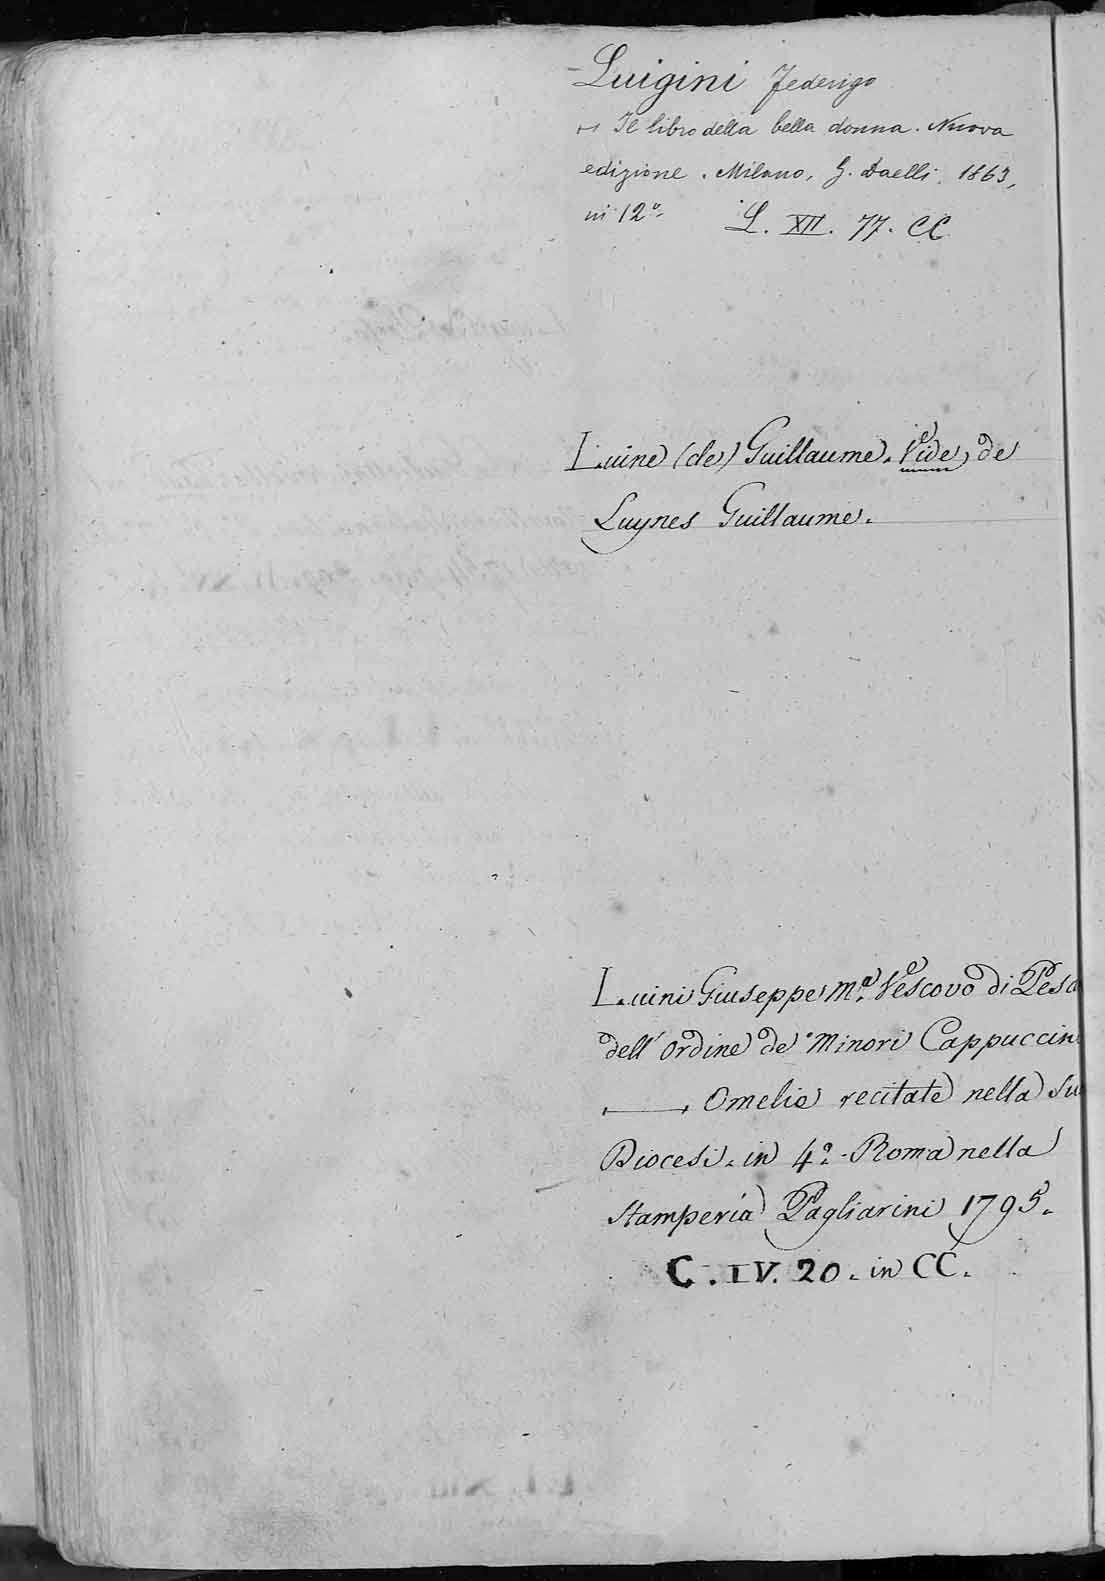 Luigini Federigo
Il libro della bella donna. Nuova
edizione. Milano, G. Daelli. 1863,
in 12º.
L. XII. 77. CC
Luine (de) Guillaume. Vide, de
Luynes Guillaume.
Luini Giuseppe M.ª Vescovo di Pesa
dell' Ordine de' Minori Cappuccin
——, Omelie recitate nella Su
Diocesi. in 4º. Roma nella
Stamperia Pagliarini 1795.
C. IV. 20. in CC.